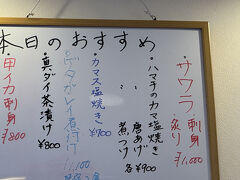 本日のおすすめ
サワラ 刺身 炙り ¥1,000
・ハマチのカマ塩焼き
〃 唐あげ
〃 煮つけ 各¥900
・カマス塩焼き ¥900
ガレイ煮付け 1,100
・真ダイ茶漬け ¥800
・甲イカ刺身 ¥800